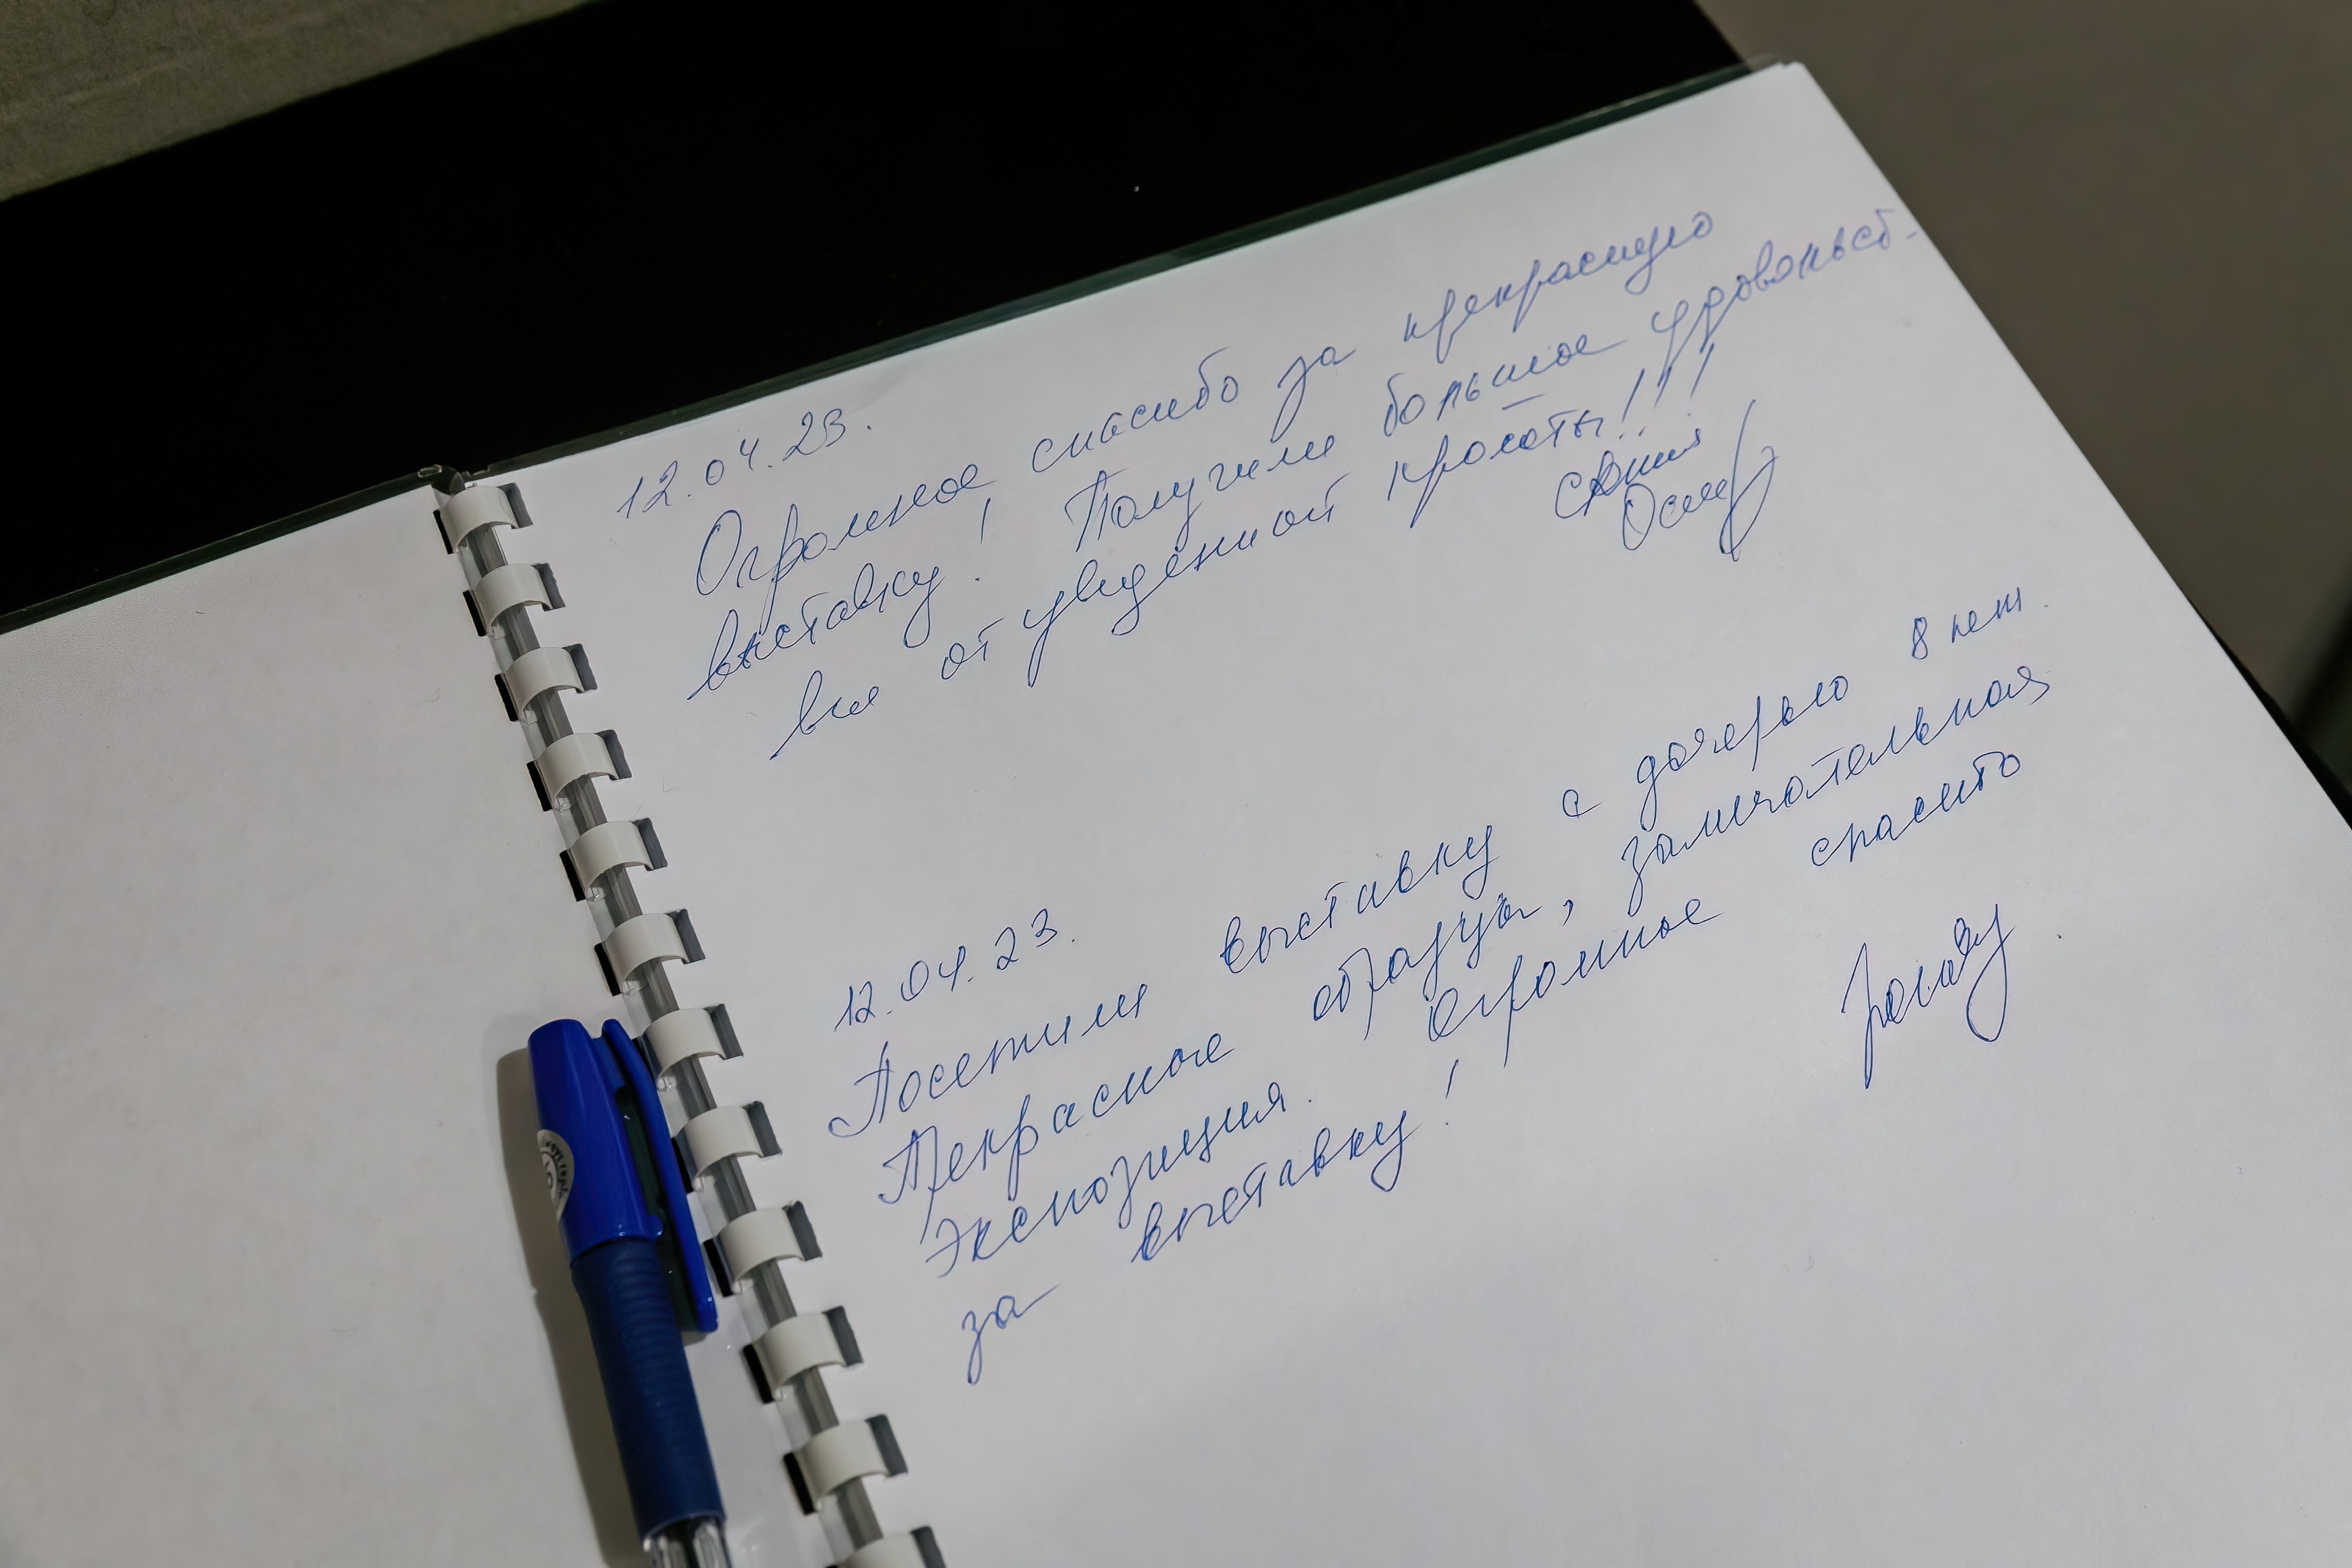 12.04.23.
Огромное спасибо за прекрасную
выставку! Получили большое удовольст-
вие от увиденной красоты!!!!
12.04.23.
Посетили выставку с дочерью 8 лет.
Прекрасные образцы, замечательная
экспозиция. Огромное спасибо
за выставку!